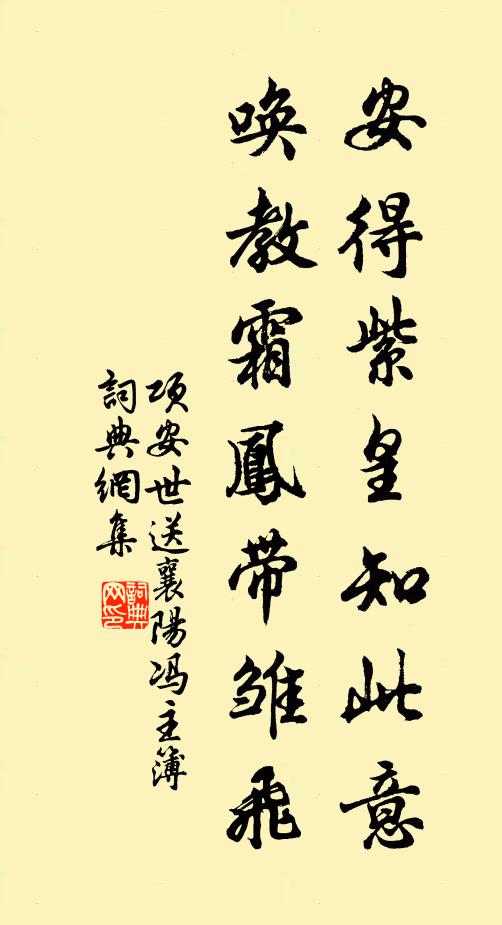 安得紫皇知此意
唤教霜鳳帶雏飛
项安世送襄陽冯主簿
詞典網集
詞典网印